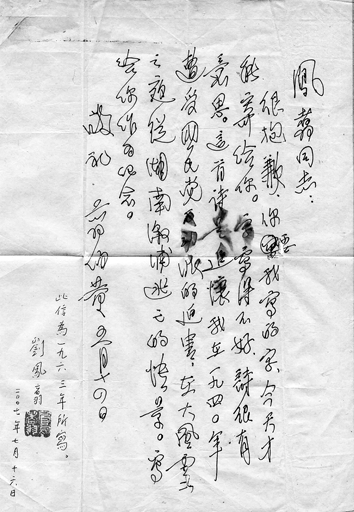 凤翥同志:
很抱歉,你要我写的字,今天才
能寄给你。写得不好,诗很有
意思。这首诗是追怀我在一九四〇年
遭受国民党的迫害,在大风雪
之夜从湖南溆浦逃亡的情景。写
给你作为纪念。
敬礼 五月十四日
此信为一九六三年所写。
劉鳳翥
二〇〇七年七月十六日